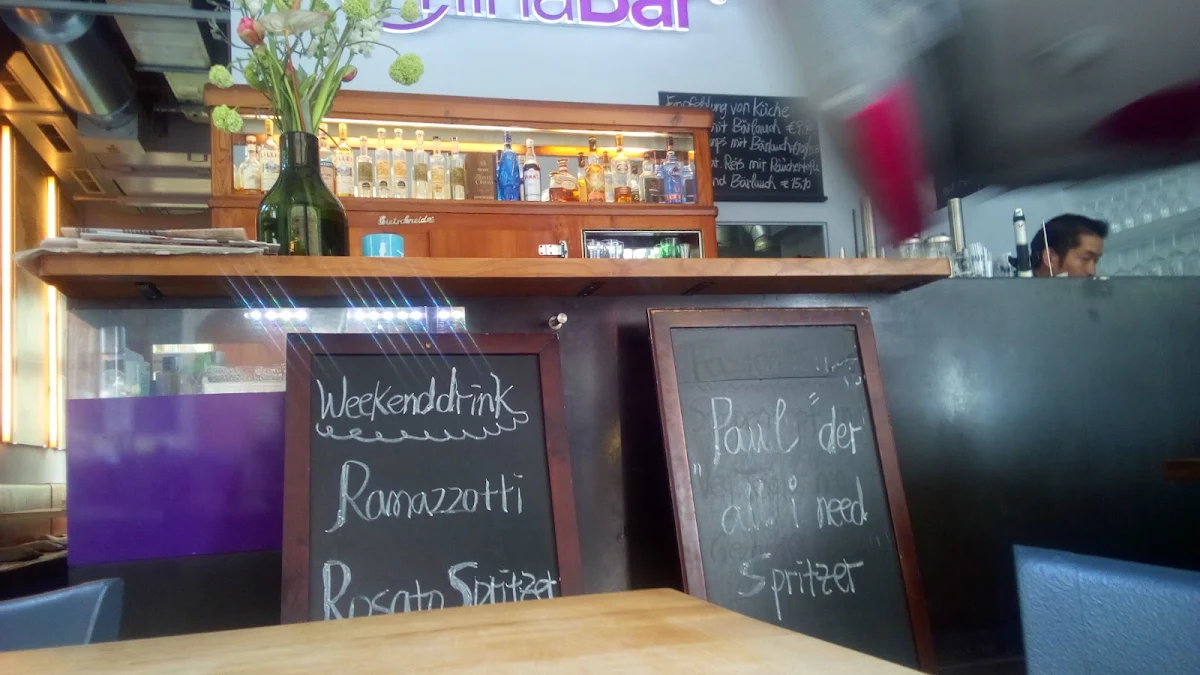 ChinaBar
Empfehlung von Küche
mit Bärlauch
mit Bärlauch
Reis mit
Bärlauch € 15,90
Weekenddrink
Ramazzotti
Rosato Spritzer
"Paul" der
all i need
Spritzer